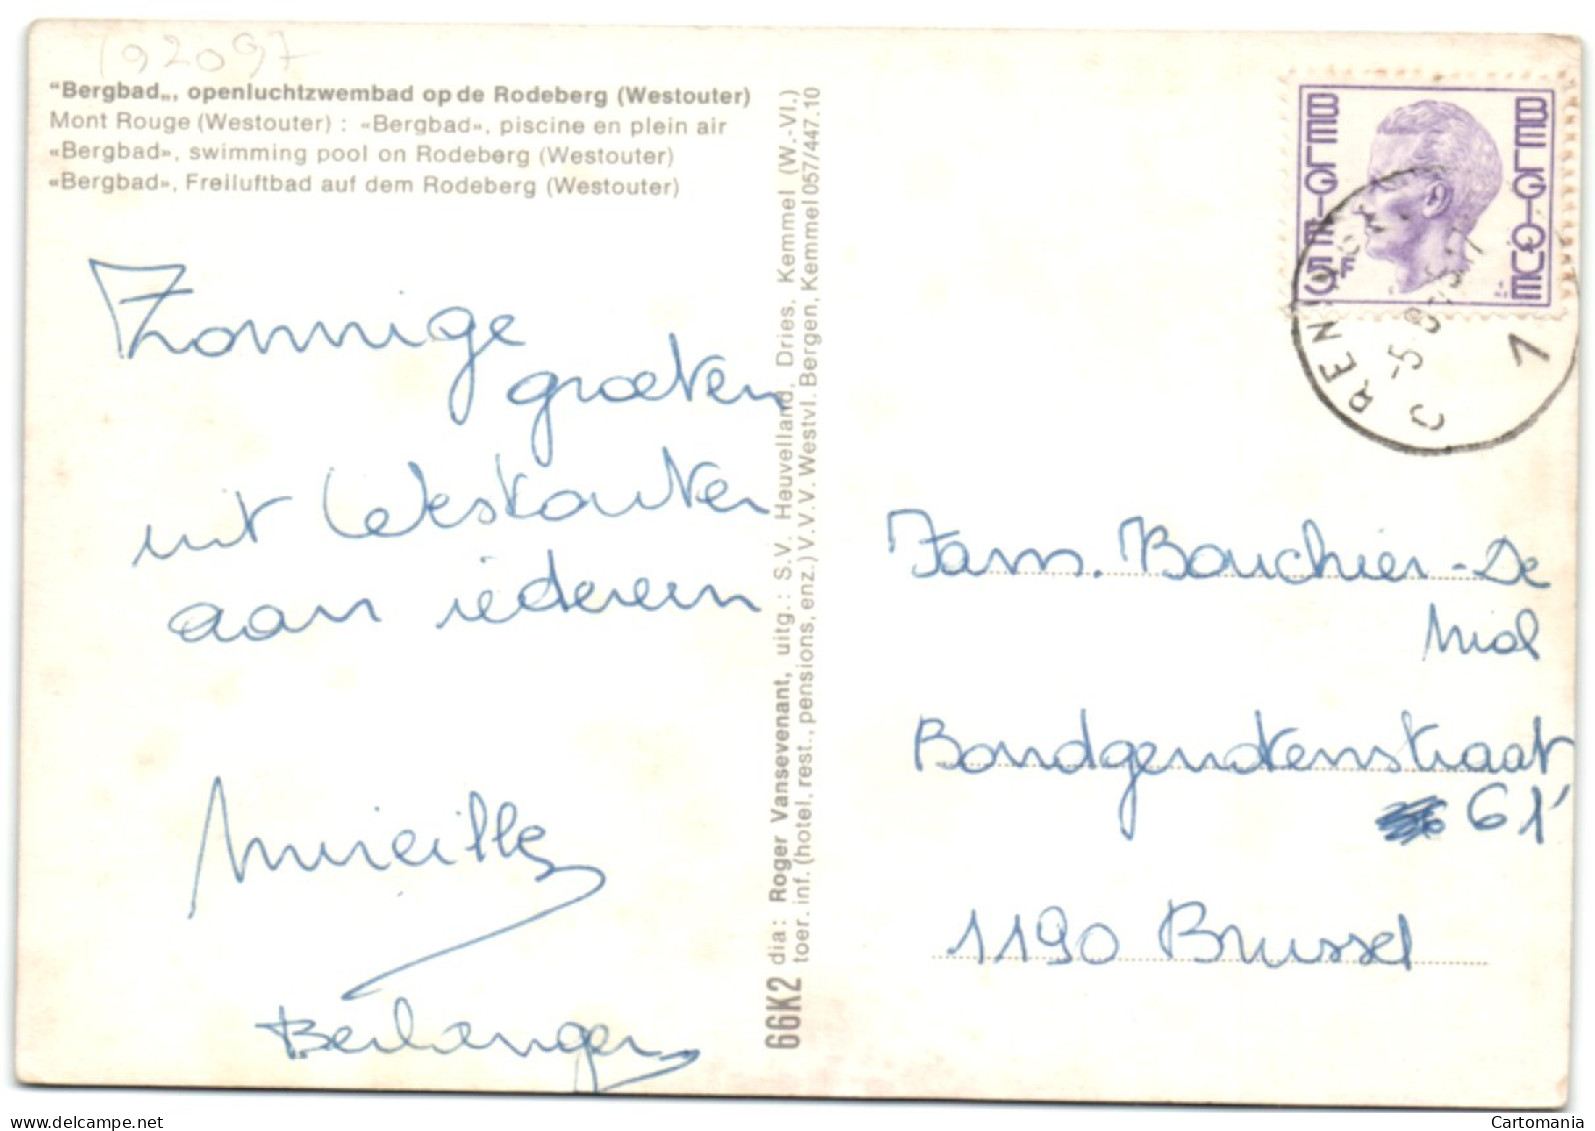 192097
"Bergbad„, openluchtzwembad op de Rodeberg (Westouter)
Mont Rouge (Westouter) : «Bergbad», piscine en plein air
«Bergbad», swimming pool on Rodeberg (Westouter)
«Bergbad», Freiluftbad auf dem Rodeberg (Westouter)
Zonnige
groeten
uit Westouter
aan iedereen
Mireille
Berlanger
66K2 dia: Roger Vansevenant, uitg.: S.V. Heuvelland, Dries, Kemmel (W.-Vl.)
toer. inf. (hotel, rest., pensions, enz.) V.V.V. Westvl. Bergen, Kemmel 057/447.10
BELGIE 5F
BELGIQUE
RENINGE
1
Fam. Bouchier-De
Mol
Bondgenotenstraat
61
1190 Brussel
Cartomania